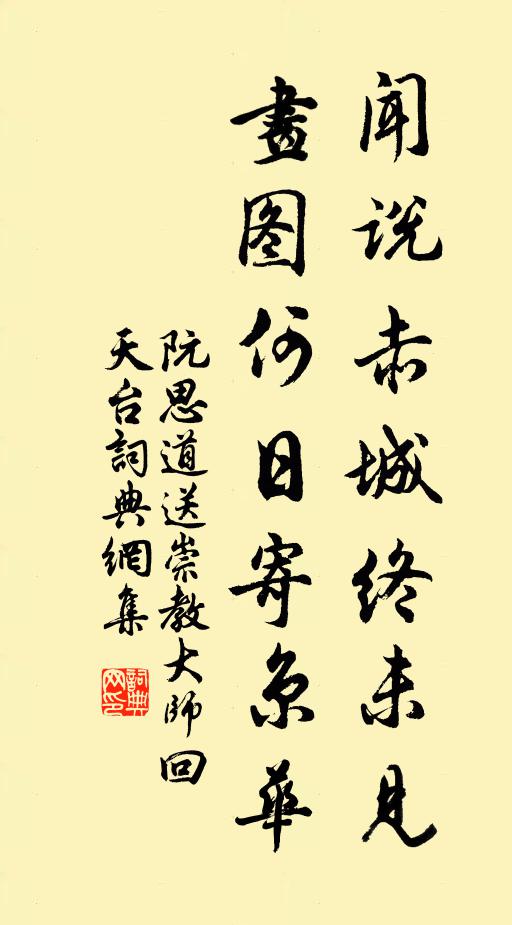 闻说赤城终未见
畫图何日寄京華
阮思道送崇教大师回
天台詞典網集
詞典网印